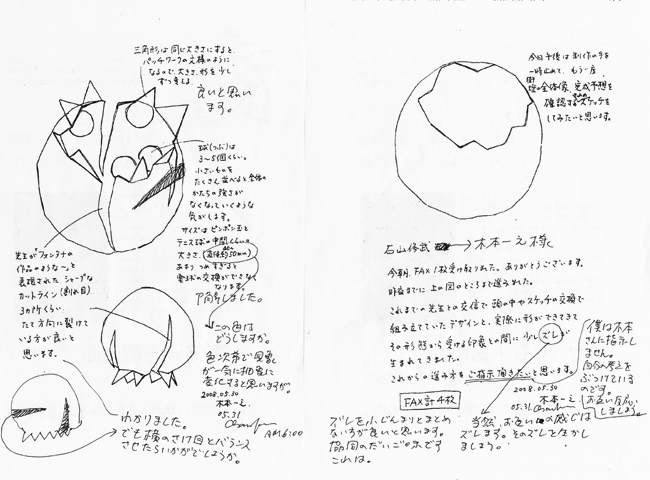 三角形は同じ大きさにすると、
パッチワークの文様のように
なるので、大きさ、形を少し
ずつ変える
良いと思い
ます。
球(つぶ)は
3〜5個くらい。
小さいものを
たくさん並べると全体の
かたちの強さが
なくなっていくような
気がします。
サイズはピンポン玉と
テニス球の中間くらいの
大きさ、(直径約50mm)
あまりつめすぎると
電球の交換ができなく
なります。
了解しました。
先生が"フォンタナの
作品のような〜"と
表現されたシャープな
カットライン(割れ目)
3ヵ所くらい
たて方向に裂けて
いる方が良いと
思います。
この色は
どうしますか。
色次第で印象
が一気に相当に
変化すると思いますが。
2008.05.30
木本一之
05.31
AM6:00
わかりました。
でも横のさけ目とバランス
させたらいかがでしょうか。
今日午後は制作の手を
一時止めて、もう一度
照明の全体像、完成予想を
確認するためのスケッチを
してみたいと思います。
石山修武 → 木本一之様
今朝、FAX1枚受け取りました。ありがとうございます。
昨日までに上の図のところまで進みました。
これまでの先生との交信で頭の中やスケッチの交換で
組み立てていたデザインと、実際に形ができてきて
その形態から受ける印象との間に少しズレが
生まれてきました。
これからの進み方をご指示頂きたいと思います。
2008.05.30
木本一之
05.31
FAX計4枚
僕は木本
さんに指示し
ません。
自分の考えを
ぶつけている
のです。
お互い反応
しましょう。
ズレを小じんまりとまとめ
ないが良いと思います。
協同のだいご味です
これは。
当然、お互いの感じは
ズレします。そのズレを生かし
ましょう。